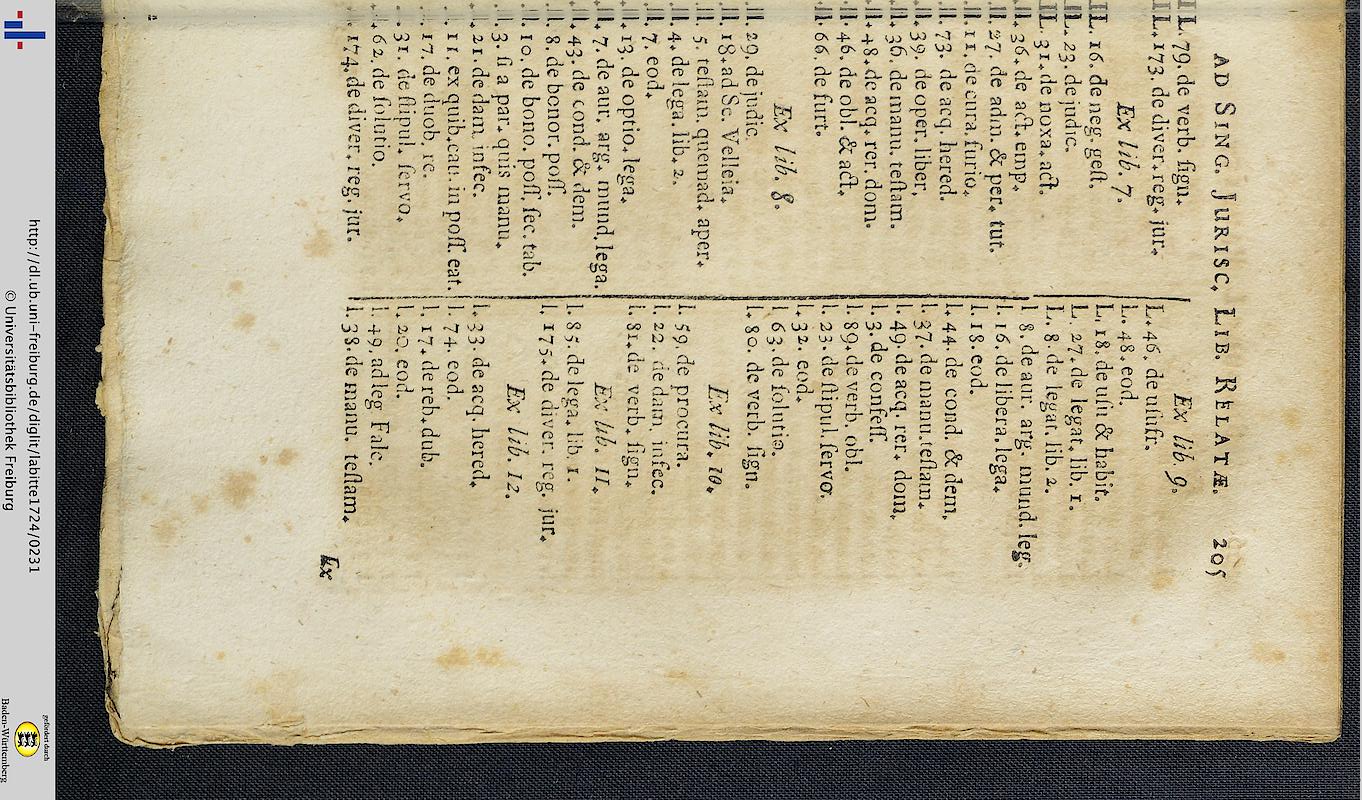 AD SING. JURISC. LIB. RELATÆ. 205
L. 79. de verb. ſign.
L. 173. de diver. reg. jur.
Ex lib. 7.
L. 16. de neg. geſt.
L. 23. de judic.
L. 31. de noxa. act.
l. 36. de act. emp.
l. 27. de adm. & per. tut.
l. 11. de cura. furio.
l. 73. de acq. hered.
l. 39. de oper. liber.
l. 36. de manu. teſtam.
l. 48. de acq. rer. dom.
l. 46. de obl. & act.
l. 66. de furt.
Ex lib. 8.
l. 29. de judic.
l. 18. ad Sc. Velleia.
l. 5. teſtam. quemad. aper.
l. 4. de lega. lib. 2.
l. 7. eod.
l. 13. de optio. lega.
l. 7. de aur. arg. mund. lega.
l. 43. de cond. & dem.
l. 8. de bonor. poſſ.
l. 10. de bono. poſſ. ſec. tab.
l. 3. ſi a par. quis manu.
l. 21. de dam. infec.
l. 11. ex quib. cau. in poſſ. eat.
l. 17. de duob. re.
l. 31. de ſtipul. ſervo.
l. 62. de ſolutio.
l. 174. de diver. reg. jur.
Ex lib. 9.
L. 46. de uſufr.
L. 48. eod.
L. 18. de uſu & habit.
L. 27. de legat. lib. 1.
L. 8. de legat. lib. 2.
l. 8. de aur. arg. mund. leg.
l. 16. de libera. lega.
l. 18. eod.
l. 44. de cond. & dem.
l. 37. de manu. teſtam.
l. 49. de acq. rer. dom.
l. 3. de confeſſ.
l. 89. de verb. obl.
l. 23. de ſtipul. ſervo.
l. 32. eod.
l. 63. de ſolutio.
l. 80. de verb. ſign.
Ex lib. 10.
l. 59. de procura.
l. 22. de dam. infec.
l. 81. de verb. ſign.
Ex lib. 11.
l. 85. de lega. lib. 1.
l. 175. de diver. reg. jur.
Ex lib. 12.
l. 33. de acq. hered.
l. 74. eod.
l. 17. de reb. dub.
l. 20. eod.
l. 49. ad leg Falc.
l. 38. de manu. teſtam.
Ex
http://dl.ub.uni-freiburg.de/diglit/labitte1724/0231
© Universitätsbibliothek Freiburg
gefördert durch
Baden-Württemberg